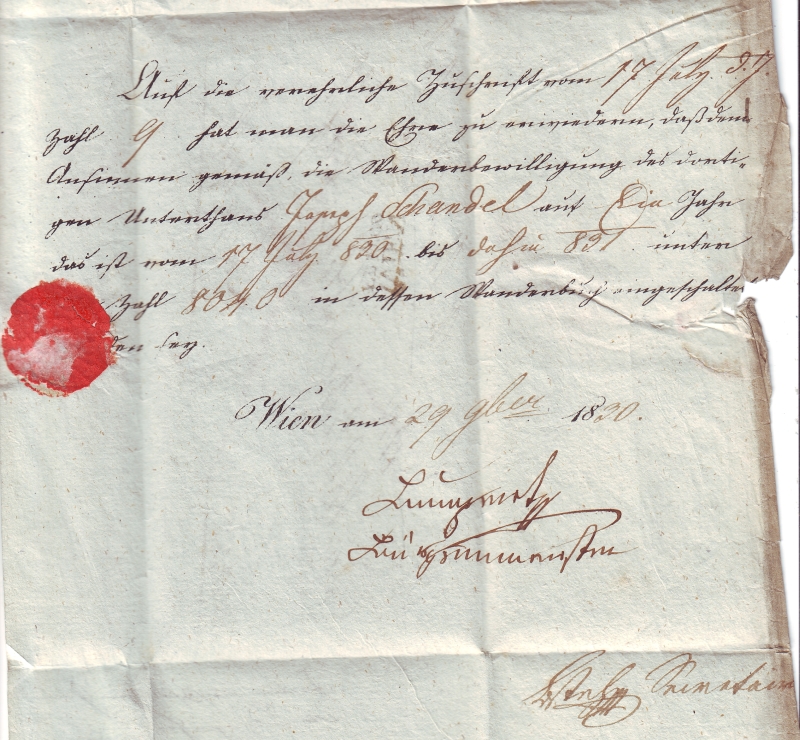 Auf die verehrliche Zuschrift vom 17 July d. J.
Zahl 9 hat man die Ehre zu erwiedern, daß dem
Ansinnen gemäß, die Wanderbewilligung des dorti-
gen Unterthans Joseph Schandel auf Ein Jahr
das ist vom 17 July 830 bis dahin 831 unter
Zahl 8040 in dessen Wanderbuch eingeschaltet
den sey.
Wien am 29 9ber 1830.
Bürgermeister
Secretair